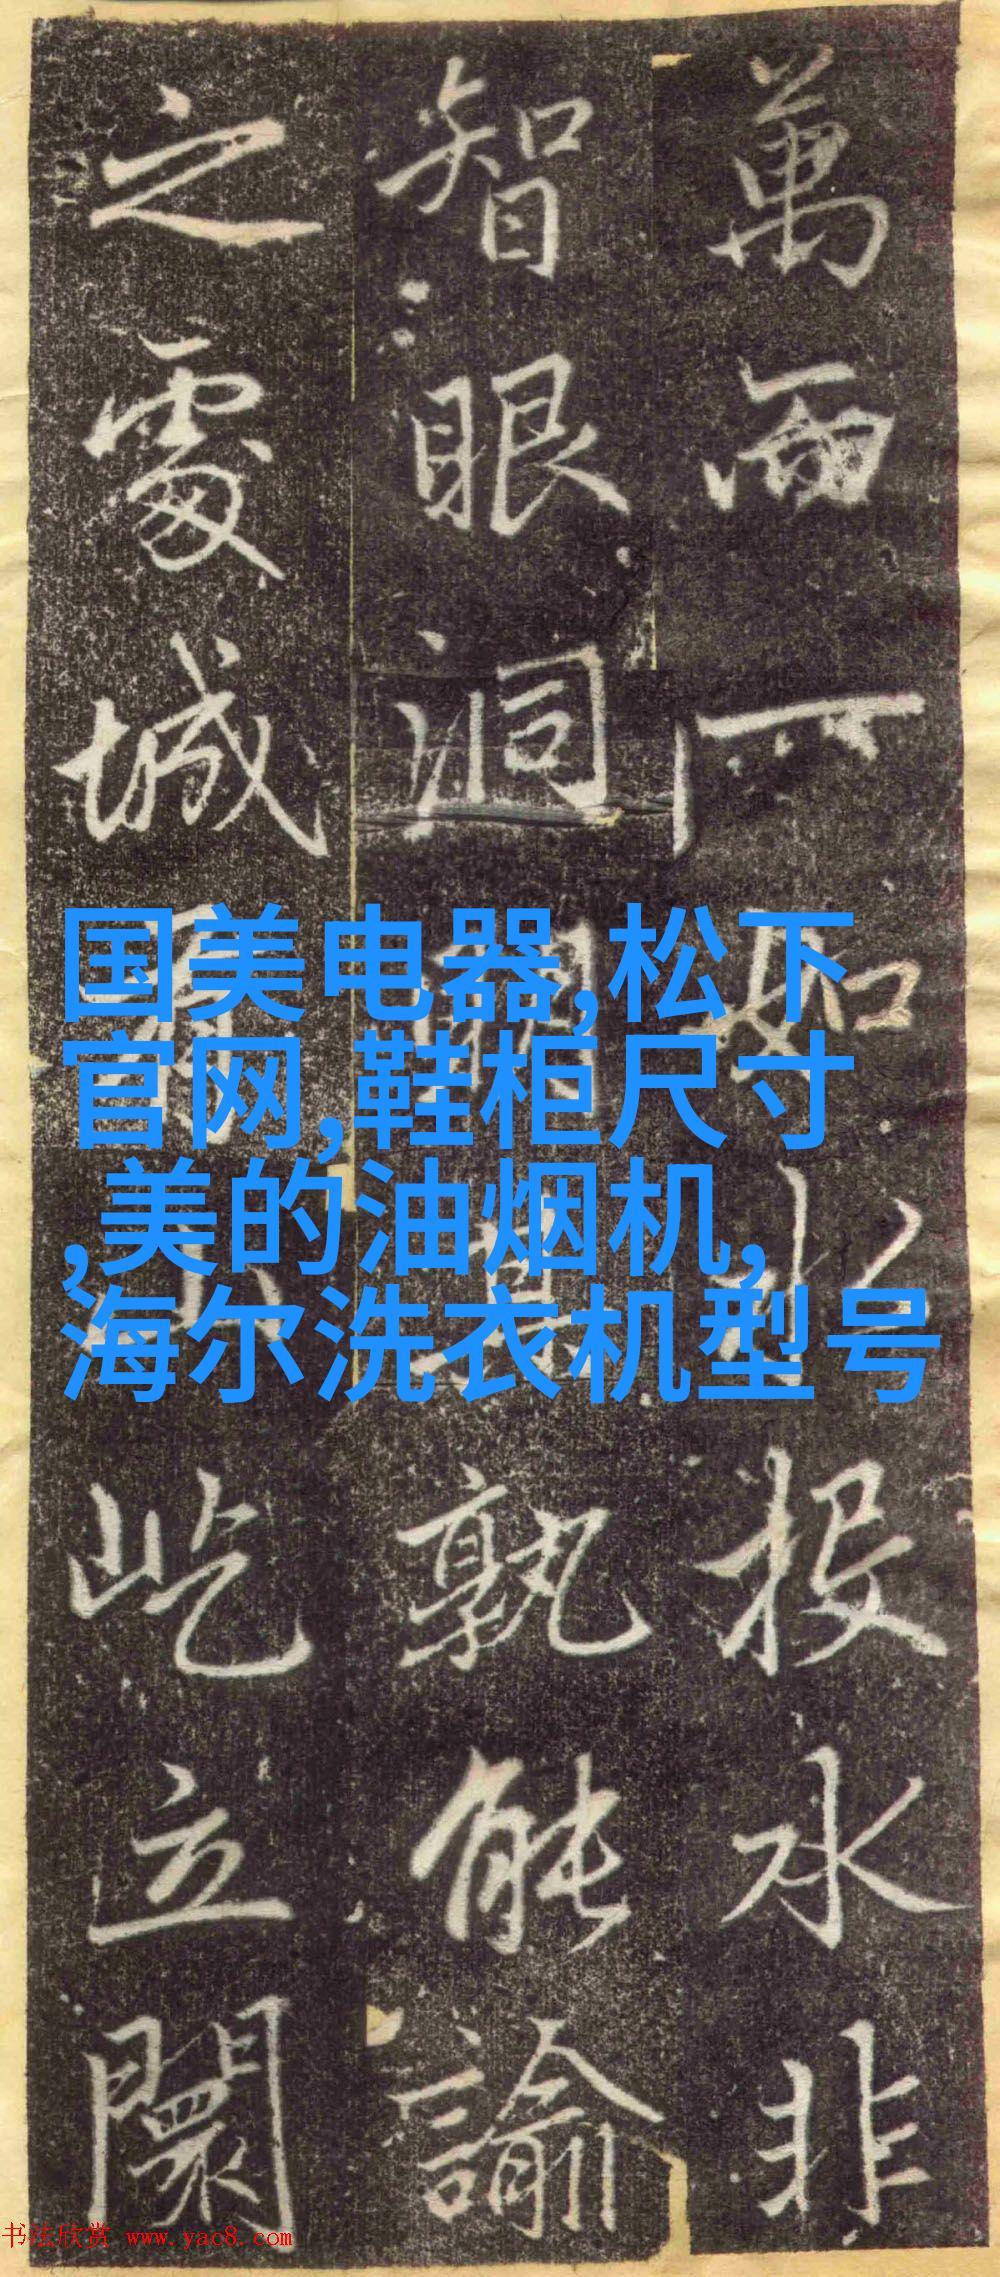 萬一如水投水非
智眼洞開其孰能諭
之城屹立闤
国美电器,松下
官网,鞋柜尺寸
,美的油烟机,
海尔洗衣机型号
书法欣赏 www.yac8.com